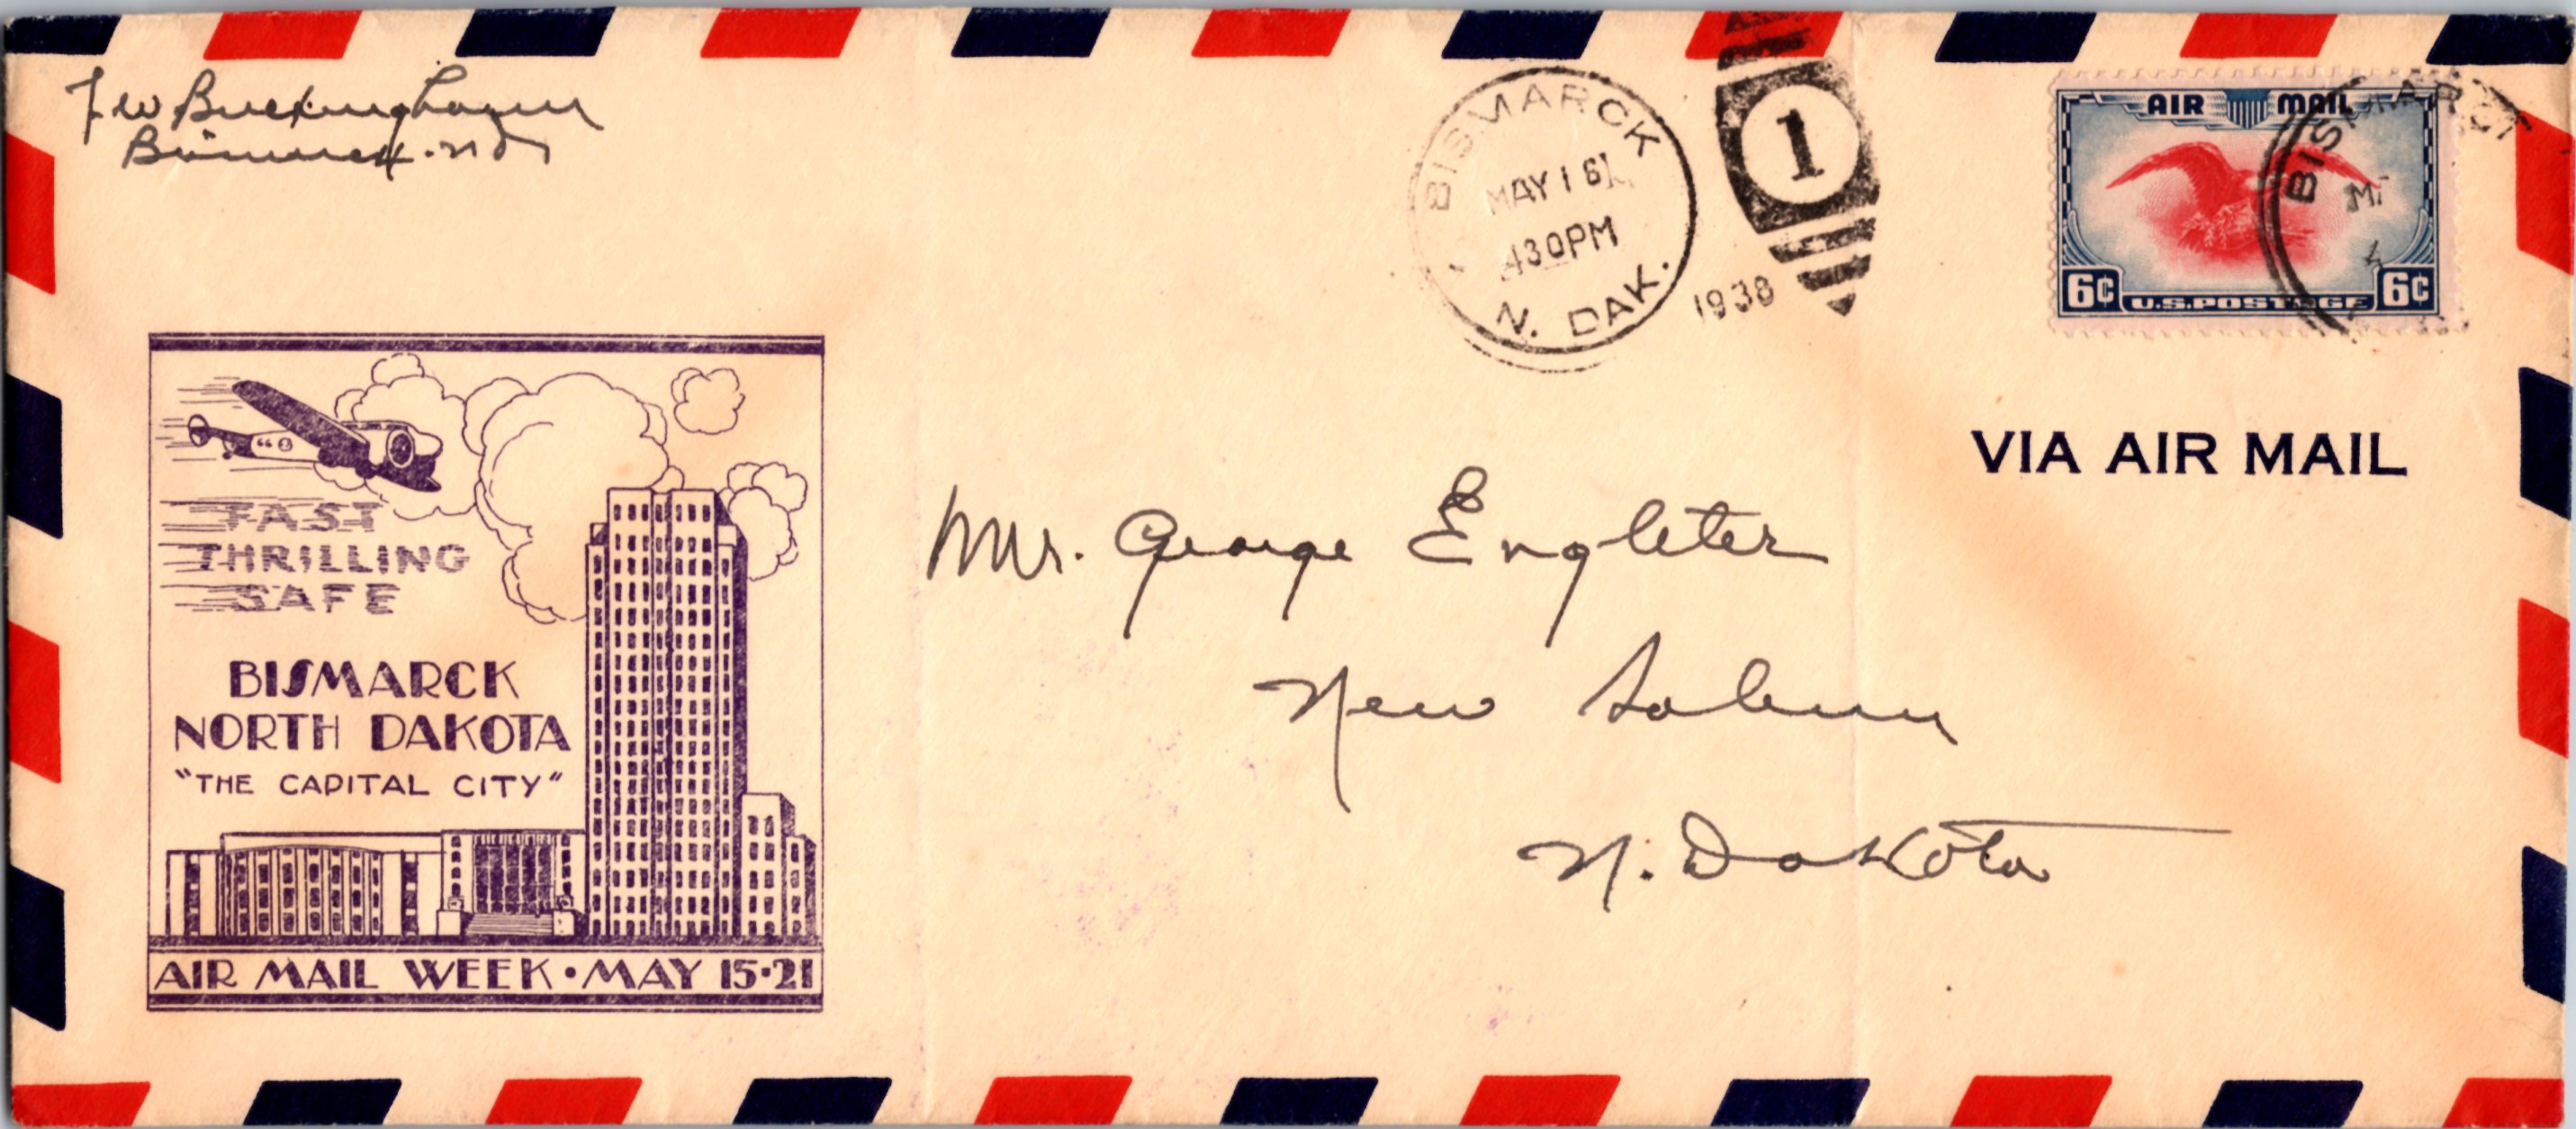 F W Buckingham
Bismarck. ND
BISMARCK
MAY 16
430 PM
N. DAK.
1938
1
AIR MAIL
6¢ U.S. POSTAGE 6¢
BISMARCK
VIA AIR MAIL
FAST
THRILLING
SAFE
BISMARCK
NORTH DAKOTA
"THE CAPITAL CITY"
AIR MAIL WEEK • MAY 15•21
Mr. George Engleter
New Salem
N. Dakota